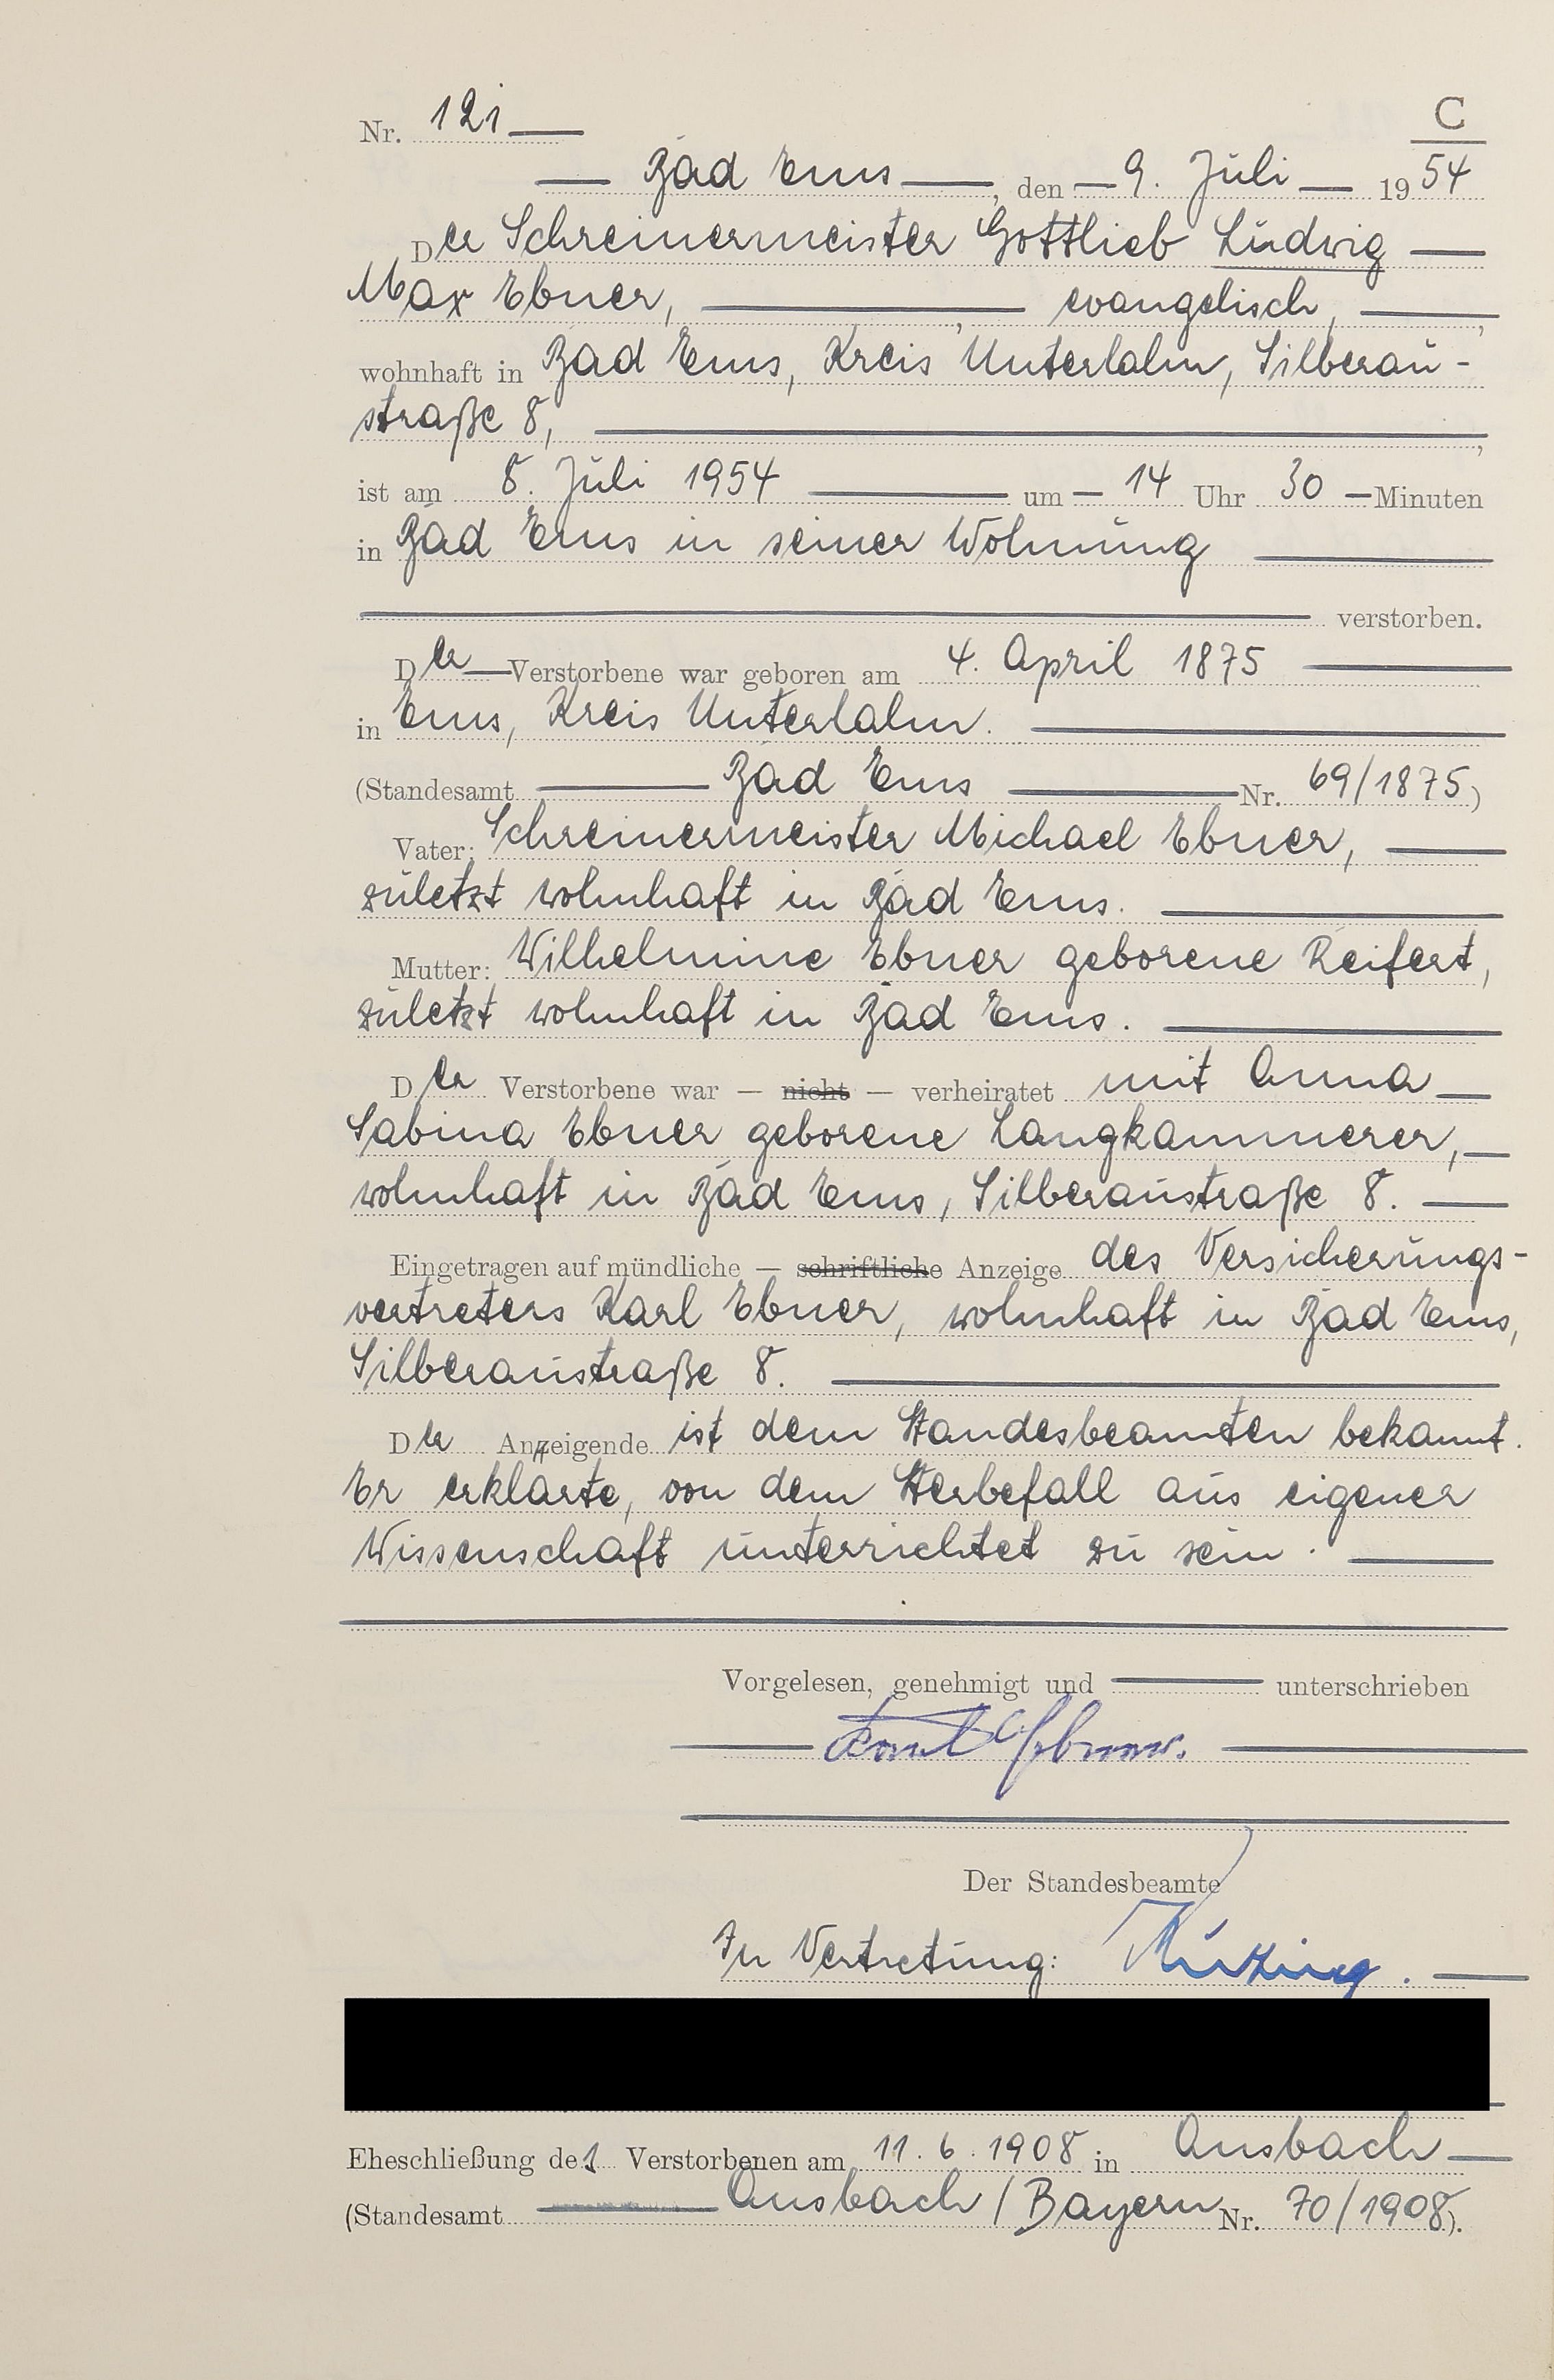 C
Nr. 121
Bad Ems, den 9. Juli 1954
Der Schreinermeister Gottlieb Ludwig
Max Ebner, , evangelisch, ,
wohnhaft in Bad Ems, Kreis Unterlahn, Silberau-
straße 8, ,
ist am 8. Juli 1954 um 14 Uhr 30 Minuten
in Bad Ems in seiner Wohnung
verstorben.
Der Verstorbene war geboren am 4. April 1875
in Ems, Kreis Unterlahn.
(Standesamt Bad Ems Nr. 69/1875)
Vater: Schreinermeister Michael Ebner,
zuletzt wohnhaft in Bad Ems.
Mutter: Wilhelmine Ebner geborene Reifert,
zuletzt wohnhaft in Bad Ems.
Der Verstorbene war — nicht — verheiratet mit Anna
Sabina Ebner geborene Langkammerer,
wohnhaft in Bad Ems, Silberaustraße 8.
Eingetragen auf mündliche — schriftliche Anzeige des Versicherungs-
vertreters Karl Ebner, wohnhaft in Bad Ems,
Silberaustraße 8.
Der Anzeigende ist dem Standesbeamten bekannt.
Er erklärte, von dem Sterbefall aus eigener
Wissenschaft unterrichtet zu sein.
Vorgelesen, genehmigt und unterschrieben
Karl Ebner.
Der Standesbeamte
In Vertretung:
Eheschließung des Verstorbenen am 11.6.1908 in Ansbach
(Standesamt Ansbach / Bayern Nr. 70/1908).